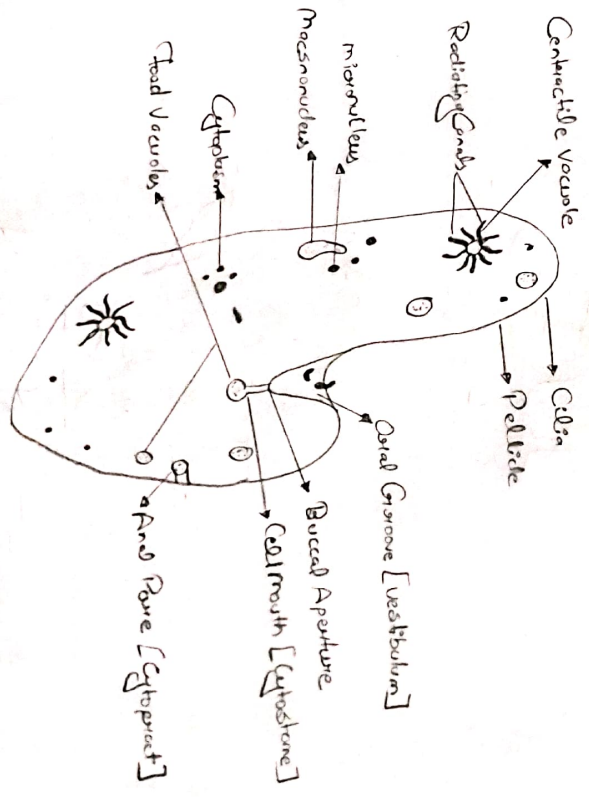 Contractile vacuole
Radiating Canals
micronulleus
Macronucleus
Cytoplasm
Food Vacuoles
Cilia
Pellicle
Oral Groove [vestibulum]
Buccal Aperture
Cell Mouth [Cytostome]
Anal Pore [Cytoproct]